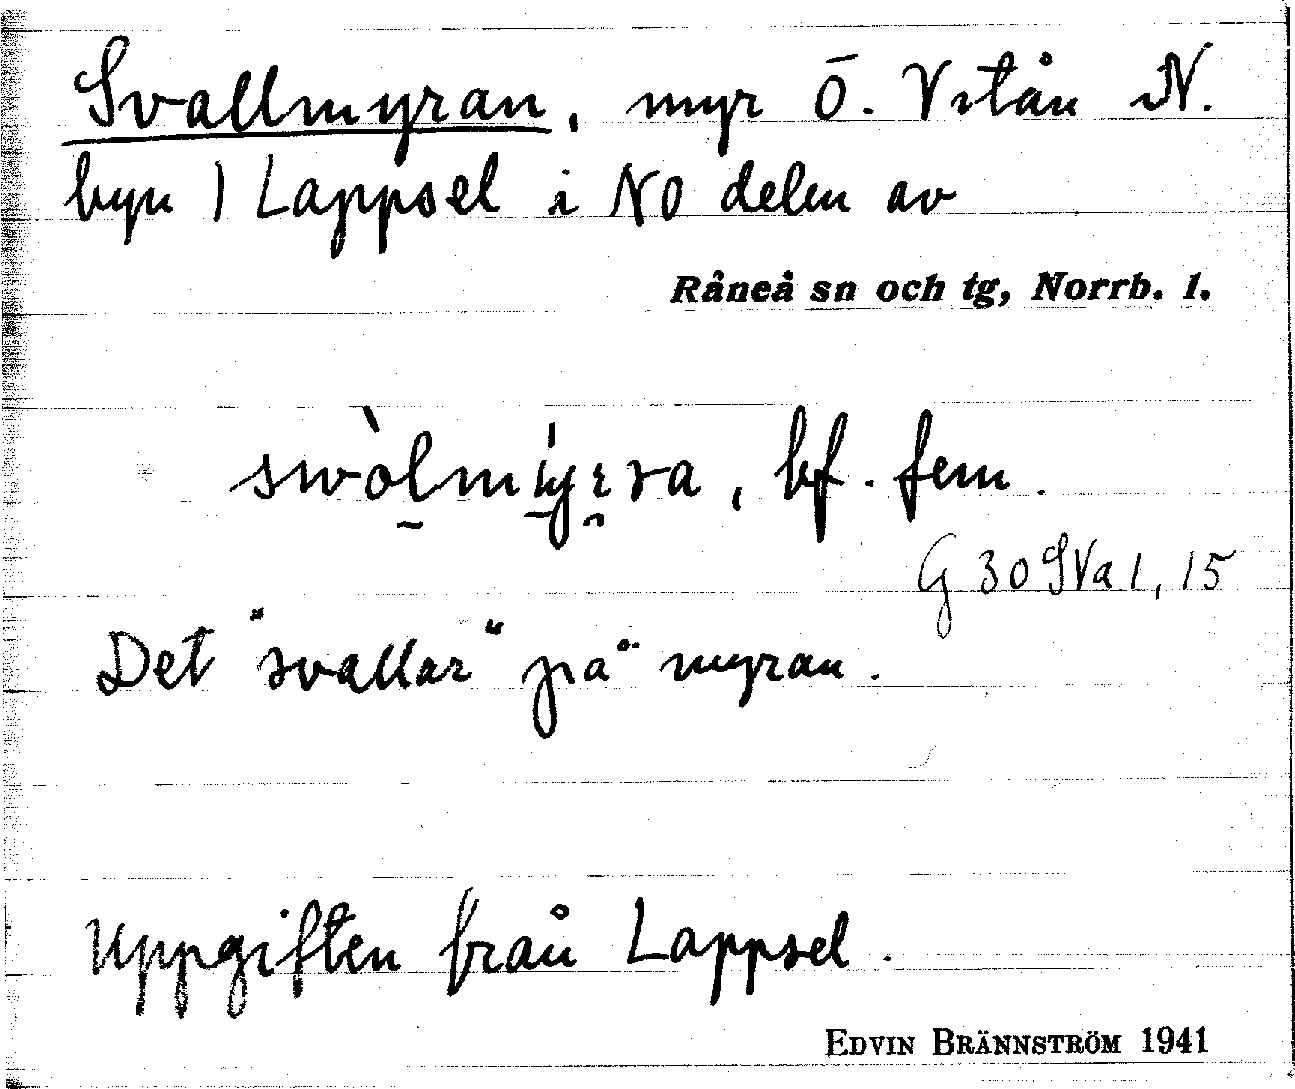 Svallmyran, myr Ö. Vitån N.
byn 1 Lappsel i NO delen av
Råneå sn och tg, Norrb. l.
bf. fem.
G 30 SVa 1, 15
Det "svallar" på myran.
Uppgiften från Lappsel.
EDVIN BRÄNNSTRÖM 1941